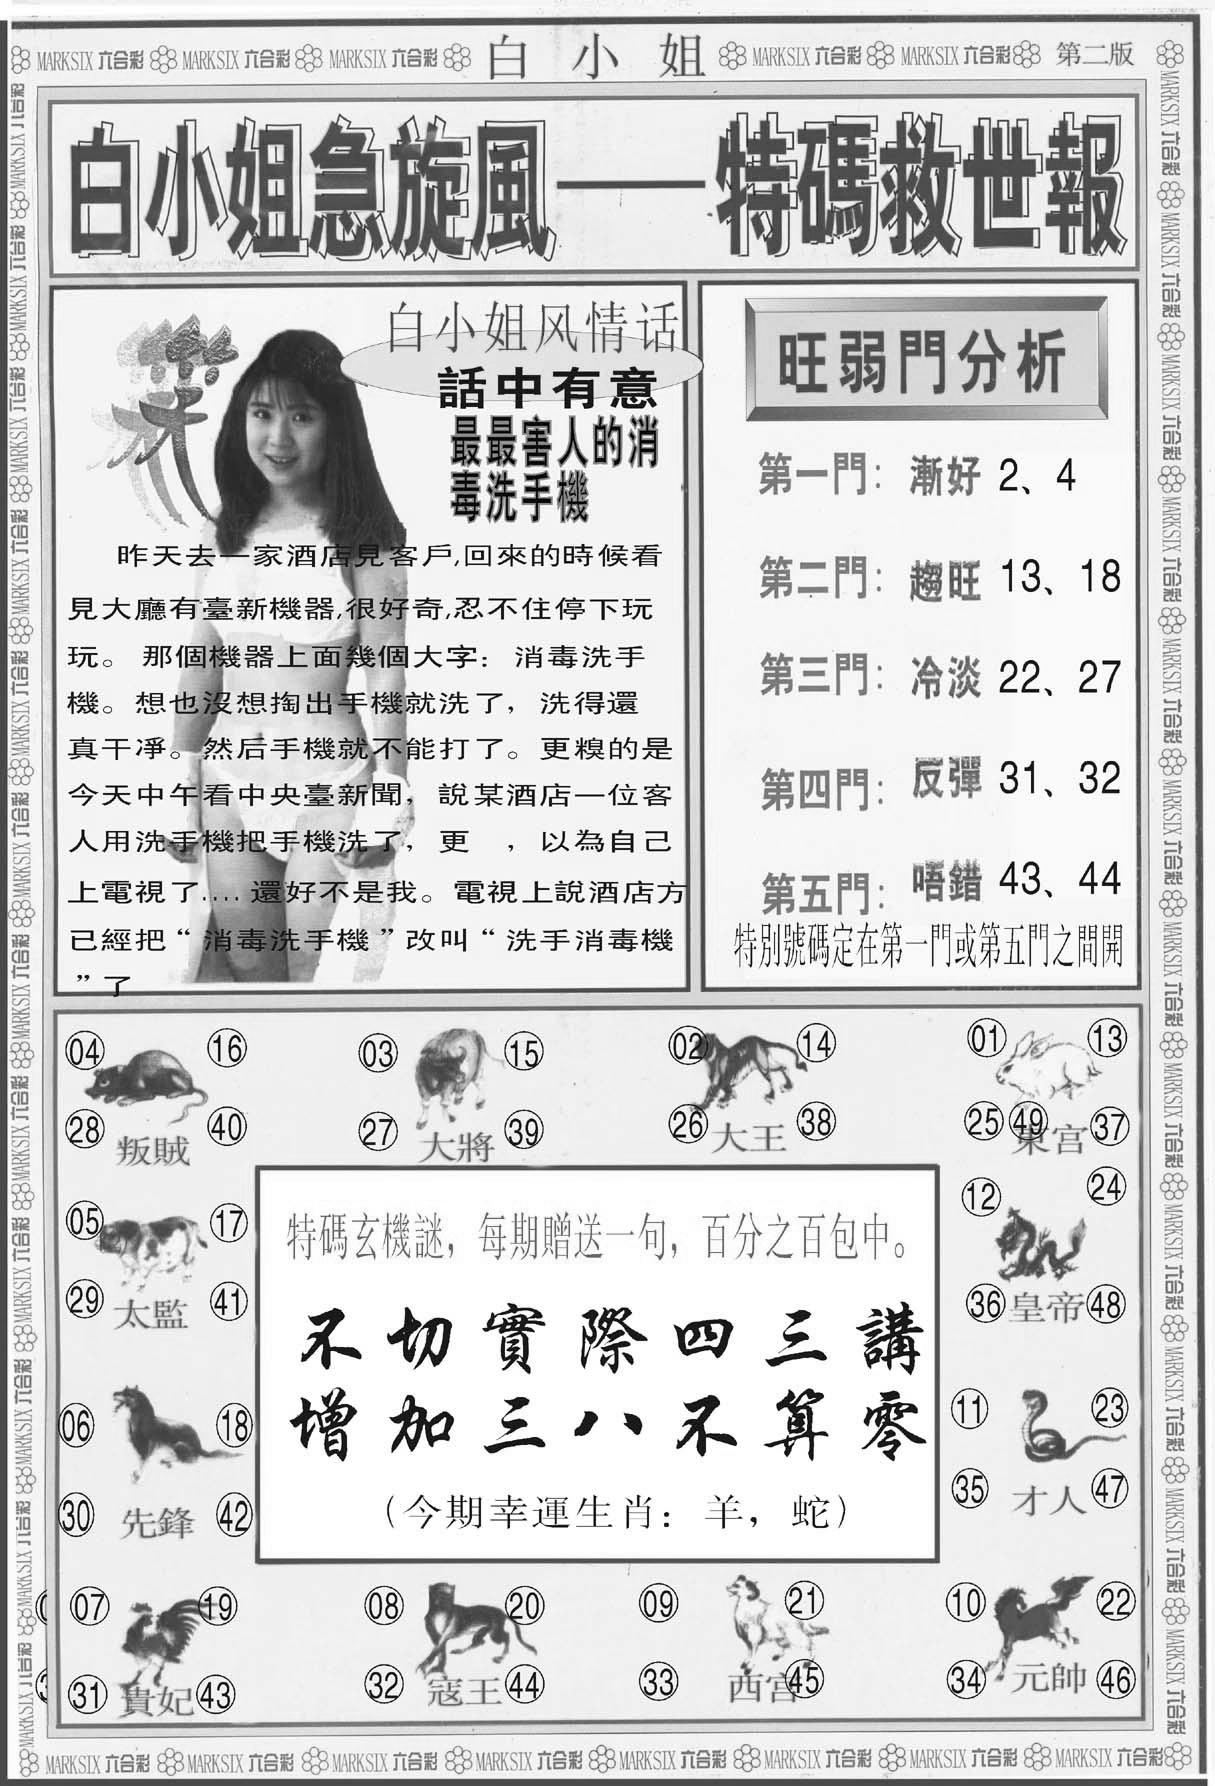 MARKSIX 六合彩 MARKSIX 六合彩 MARKSIX 六合彩 白小姐 MARKSIX 六合彩 MARKSIX 六合彩 第二版
白小姐急旋風——特碼救世報
白小姐风情话
話中有意
最最害人的消
毒洗手機
昨天去一家酒店見客戶,回來的時候看
見大廳有臺新機器,很好奇,忍不住停下玩
玩。那個機器上面幾個大字：消毒洗手
機。想也沒想掏出手機就洗了，洗得還
真干凈。然后手機就不能打了。更糗的是
今天中午看中央臺新聞，說某酒店一位客
人用洗手機把手機洗了，更　，以為自己
上電視了....還好不是我。電視上說酒店方
已經把“消毒洗手機”改叫“洗手消毒機
”了
旺弱門分析
第一門：漸好 2、4
第二門：趨旺 13、18
第三門：冷淡 22、27
第四門：反彈 31、32
第五門：唔錯 43、44
特別號碼定在第一門或第五門之間開
04 16
28 叛賊 40
03 15
27 大將 39
02 14
26 大王 38
01 13
25 49 東宮 37
05 17
29 太監 41
12 24
36 皇帝 48
特碼玄機謎，每期贈送一句，百分之百包中。
不切實際四三講
增加三八不算零
（今期幸運生肖：羊，蛇）
06 18
30 先鋒 42
11 23
35 才人 47
07 19
31 貴妃 43
08 20
32 寇王 44
09 21
33 西宮 45
10 22
34 元帥 46
MARKSIX 六合彩 MARKSIX 六合彩 MARKSIX 六合彩 MARKSIX 六合彩 MARKSIX 六合彩 MARKSIX 六合彩 MARKSIX 六合彩 MARKSIX 六合彩